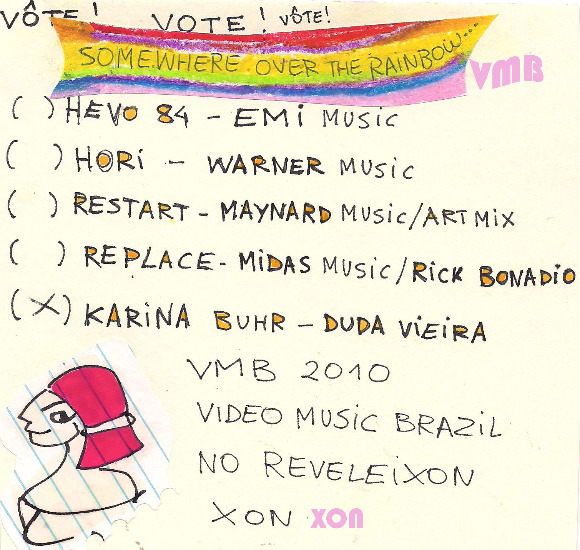 VÔTE! VOTE! VÔTE!
SOMEWHERE OVER THE RAINBOW...
VMB
( ) HEVO 84 - EMI MUSIC
( ) HORI - WARNER MUSIC
( ) RESTART - MAYNARD MUSIC/ART MIX
( ) REPLACE - MIDAS MUSIC/RICK BONADIO
(X) KARINA BUHR - DUDA VIEIRA
VMB 2010
VIDEO MUSIC BRAZIL
NO REVELEIXON
XON XON